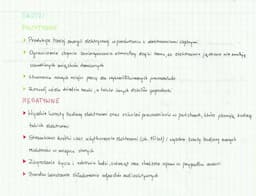 SKUTKI
POZYTYWNE
Produkcja taniej energii elektrycznej w porównaniu z elektrowniami cieplnymi
Ograniczenie stopnia zanieczyszczenia atmosfery dzięki temu, że elektrownie jądrowe nie emitują
szkodliwych związków chemicznych
Stworzenie nowych miejsc pracy dla wykwalifikowanych pracowników
Rozwój wielu dziedzin nauki, a także innych działów gospodarki
NEGATYWNE
Wysokie koszty budowy elektrowni oraz szkoleń pracowników w państwach, które planują budowę
takich elektrowni
Stosunkowo krótki czas użytkowania elektrowni
wysokie koszty budowy nowych
Zagrożenie życia i zdrowia ludzi oraz skażenie w przypadku awarii
Bardzo kosztowne składowanie odpadów radioaktywnych